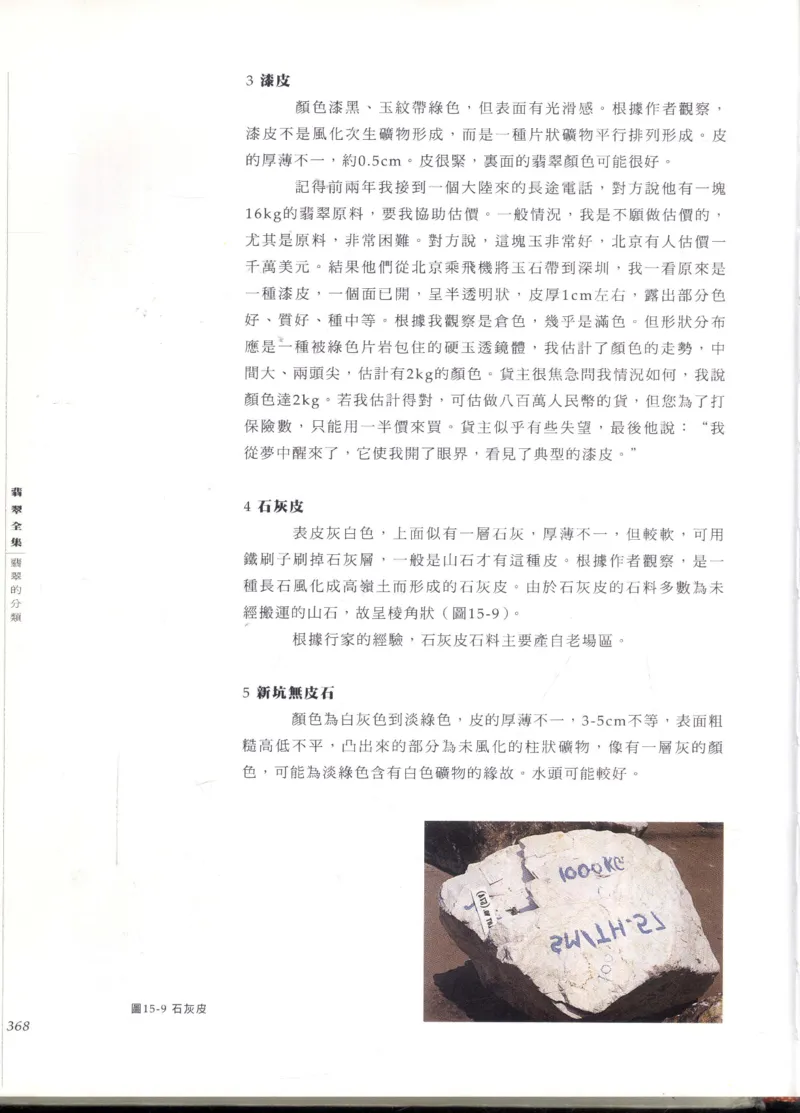 3 漆皮
顏色漆黑、玉紋帶綠色，但表面有光滑感。根據作者觀察，
漆皮不是風化次生礦物形成，而是一種片狀礦物平行排列形成。皮
的厚薄不一，約0.5cm。皮很緊，裏面的翡翠顏色可能很好。
記得前兩年我接到一個大陸來的長途電話，對方說他有一塊
16kg的翡翠原料，要我協助估價。一般情況，我是不願做估價的，
尤其是原料，非常困難。對方說，這塊玉非常好，北京有人估價一
千萬美元。結果他們從北京乘飛機將玉石帶到深圳，我一看原來是
一種漆皮，一個面已開，呈半透明狀，皮厚1cm左右，露出部分色
好、質好、種中等。根據我觀察是倉色，幾乎是滿色。但形狀分布
應是一種被綠色片岩包住的硬玉透鏡體，我估計了顏色的走勢，中
間大、兩頭尖，估計有2kg的顏色。貨主很焦急問我情況如何，我說
顏色達2kg。若我估計得對，可估做八百萬人民幣的貨，但您為了打
保險數，只能用一半價來買。貨主似乎有些失望，最後他說：“我
從夢中醒來了，它使我開了眼界，看見了典型的漆皮。”
4 石灰皮
表皮灰白色，上面似有一層石灰，厚薄不一，但較軟，可用
鐵刷子刷掉石灰層，一般是山石才有這種皮。根據作者觀察，是一
種長石風化成高嶺土而形成的石灰皮。由於石灰皮的石料多數為未
經搬運的山石，故呈棱角狀（圖15-9）。
根據行家的經驗，石灰皮石料主要產自老場區。
5 新坑無皮石
顏色為白灰色到淡綠色，皮的厚薄不一，3-5cm不等，表面粗
糙高低不平，凸出來的部分為未風化的柱狀礦物，像有一層灰的顏
色，可能為淡綠色含有白色礦物的緣故。水頭可能較好。
1000KG
圖15-9 石灰皮
翡翠全集
翡翠的分類
368